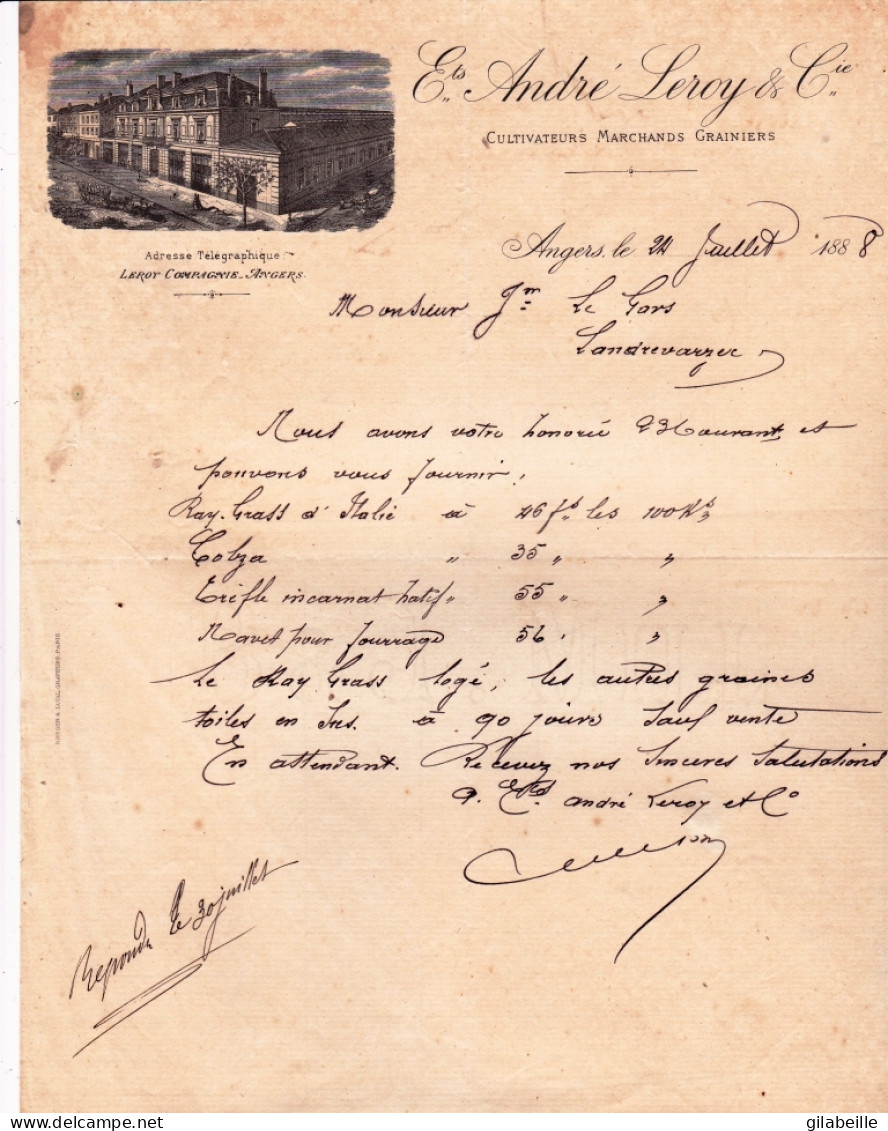 Ets André Leroy & Cie
Cultivateurs Marchands Grainiers
Adresse Télégraphique
Leroy Compagnie_Angers.
Angers, le 24 Juillet 1888
Monsieur Jn Le Gars
Landrevarzec
Nous avons votre honorée 23 Courant, et
pouvons vous fournir,
Ray-Grass d'Italie à 46 fs les 100 Ks
Colza " 35 " "
Trèfle incarnat hatif " 55 " "
Navet pour fourrage 56 " "
Le Ray Grass logé, les autres graines
toiles en sus. à 90 jours sauf vente
En attendant. Recevez nos Sinceres Salutations
p. Ets andré Leroy et Co
Repondu le 30 juillet
delcampe.net
gilabeille